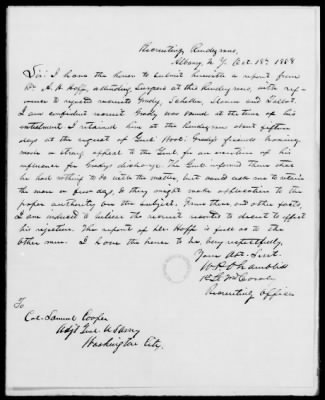 Recruiting Rendezvous,
Albany N.Y. Oct. 18th 1858
Sir: I have the honor to submit herewith a report from
Dr. A. H. Hoff, attending Surgeon at this Rendezvous, with ref-
erence to rejected recruits Grady, Sahellen, and Talbot.
I am confident recruit Grady was sound at the time of his
enlistment. I retained him at the rendezvous about fifteen
days at the request of Genl. Wool. Grady's friends having
made a strong appeal to the Genl. for an exertion of his
influence for Grady's discharge. The Genl. informed them that
he had nothing to do with the matter, but would ask me to retain
the man a few days, & they might make application to the
proper authority on the subject. From these and other facts,
I am induced to believe the recruit resorted to deceit to effect
his rejection. The report of Dr. Hoff is full as to the
other men. I have the honor to be, Very respectfully,
Your Obt. Servt.
W. P. Chambliss
Recruiting Officer
To
Col. Samuel Cooper
Adjt Genl. U.S. Army
Washington City.